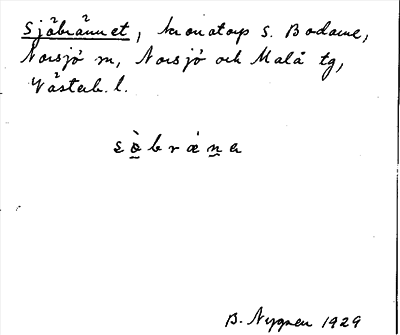 Sjöbrännet, kronotorp s. Bodarne,
Norsjö sn, Norsjö och Malå tg,
Västerb. l.
B. Nygren 1929